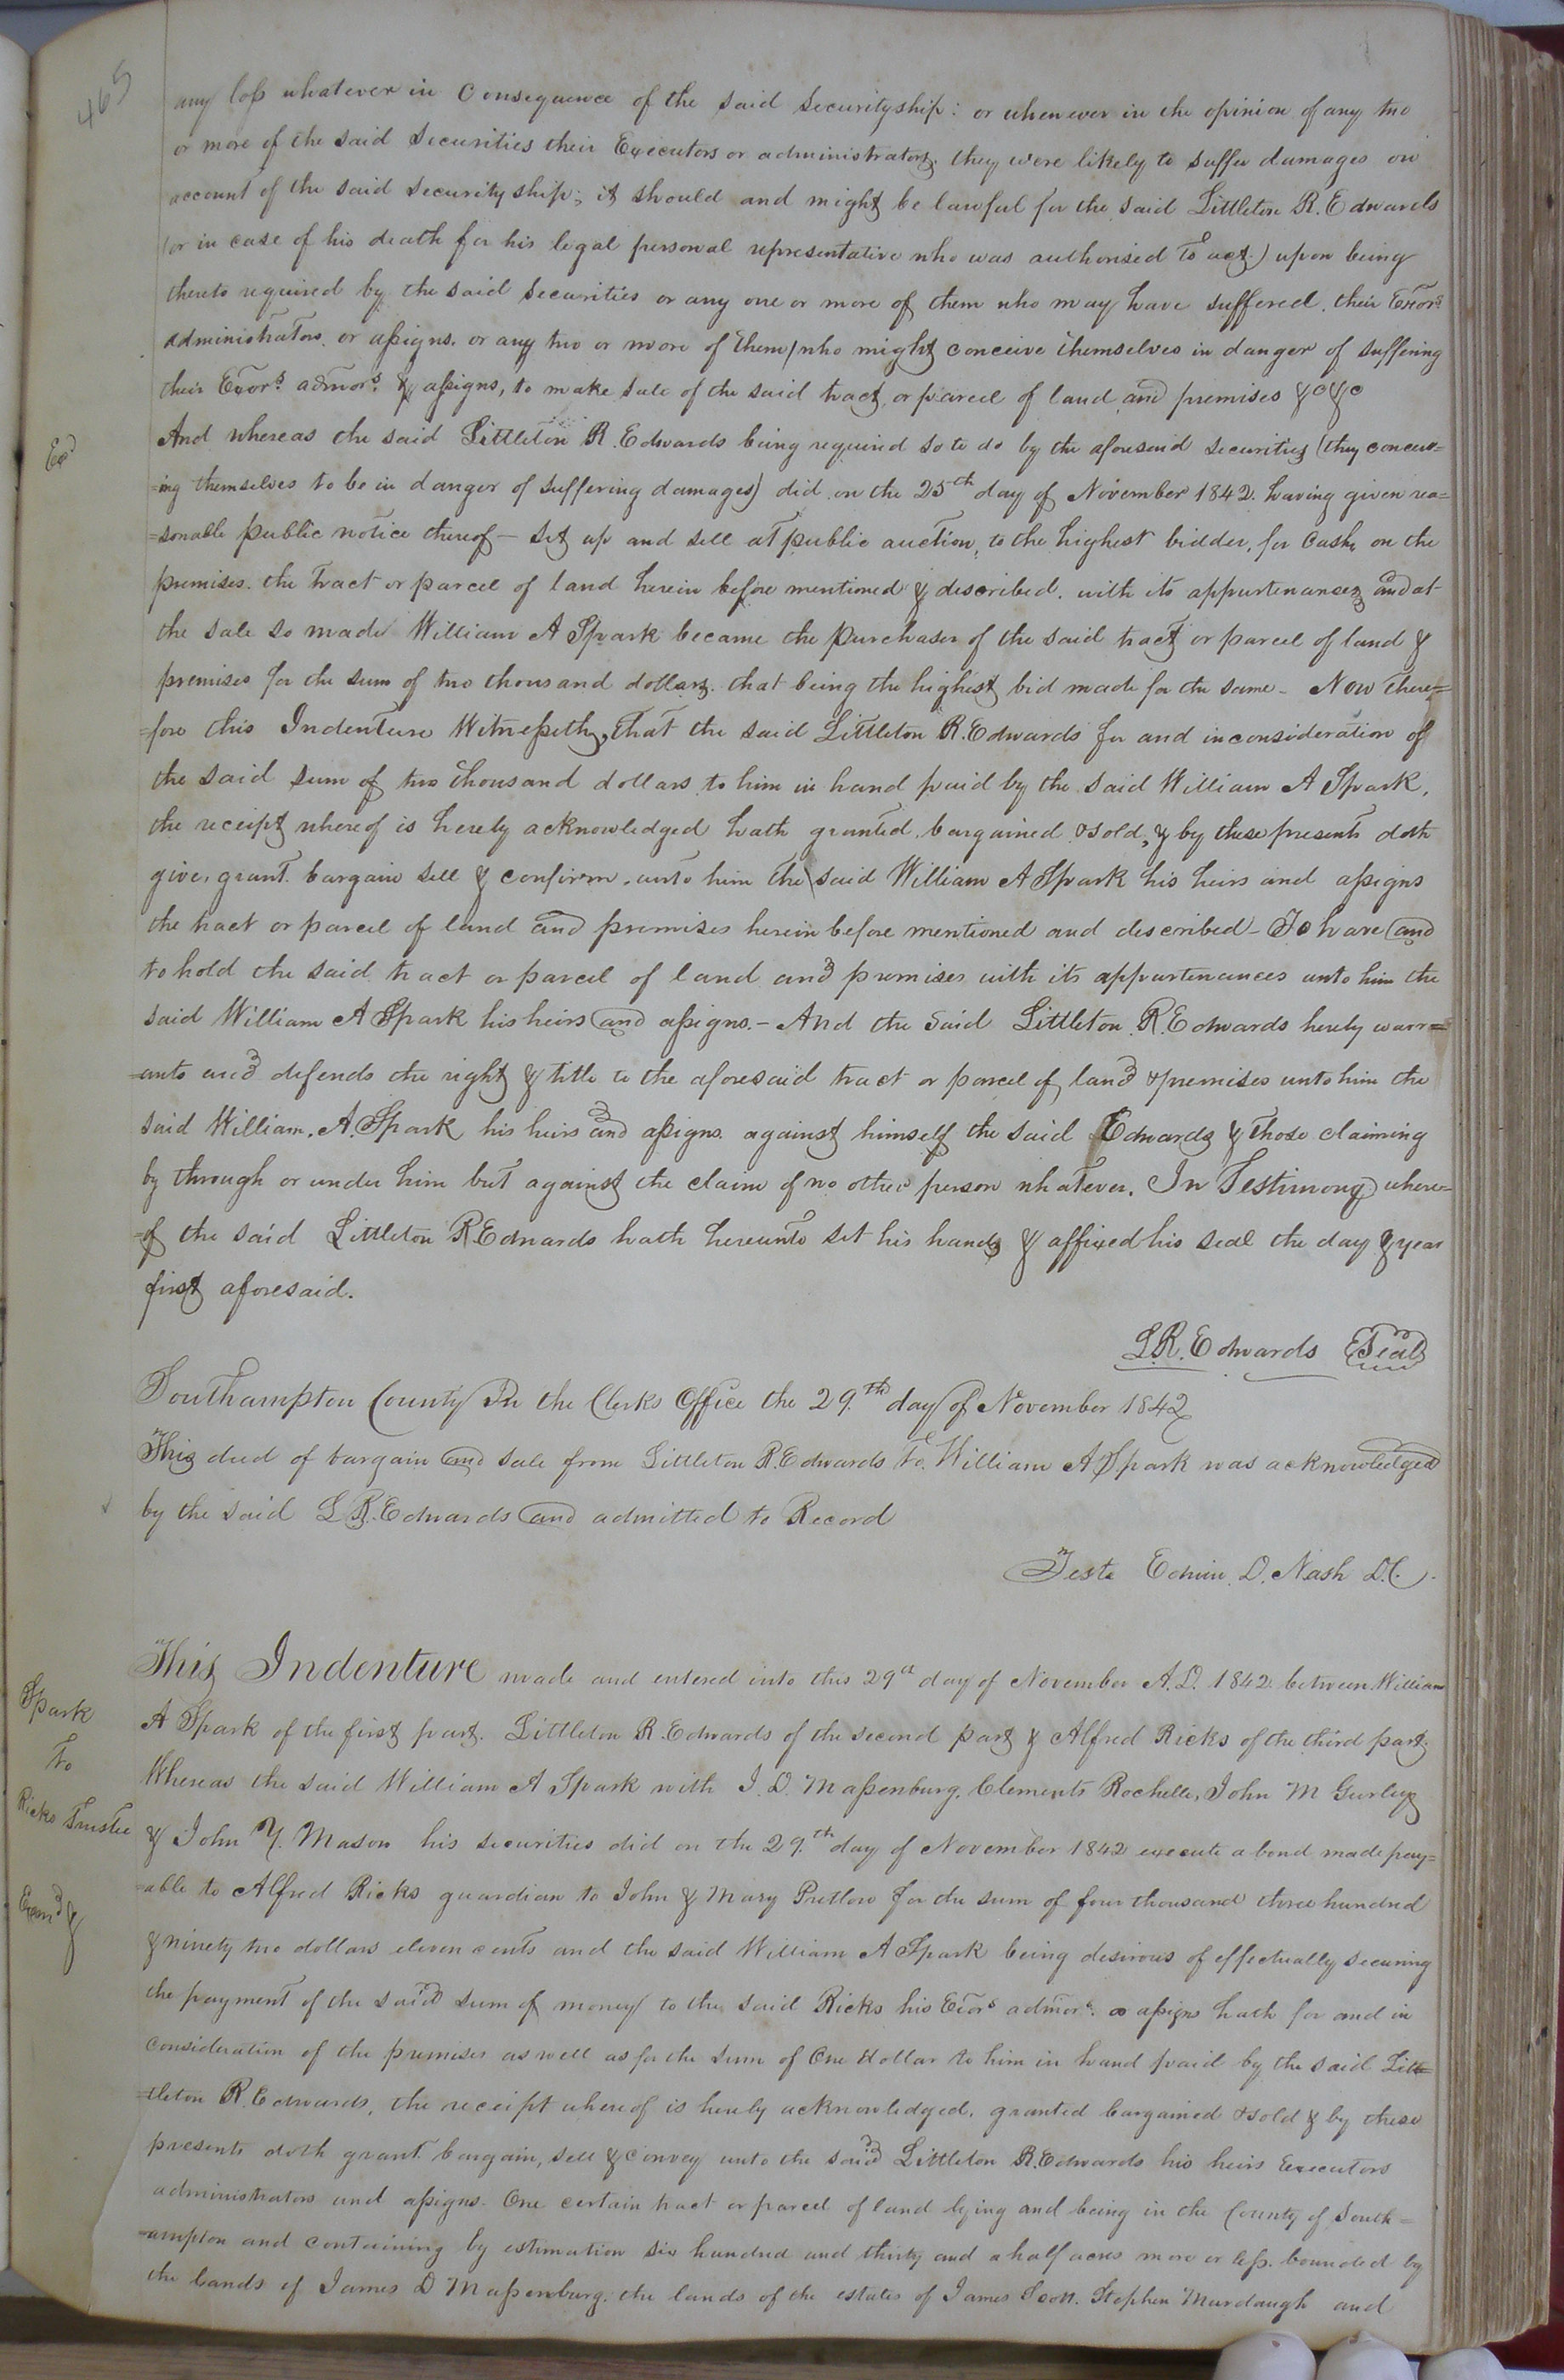 465
any loss whatever in Consequence of the said Securityship: or whenever in the opinion of any two
or more of the said Securities their Executors or administrators, they were likely to suffer damages on
account of the said Securityship; it should and might be lawful for the said Littleton R. Edwards
(or in case of his death for his legal personal representative who was authorised to act.) upon being
thereto required by the said Securities or any one or more of them who may have suffered, their Exors
administrators, or assigns, or any two or more of them, who might conceive themselves in danger of suffering
their Exors. admors. & assigns, to make sale of the said tract, or parcel of land and premises &c &c
And whereas the said Littleton R. Edwards being required so to do by the aforesaid securities (they conceiv=
Exd
=ing themselves to be in danger of suffering damages) did on the 25th day of November 1842. having given rea=
=sonable public notice thereof – set up and sell at public auction, to the highest bidder, for Cash, on the
premises. the tract or parcel of land herein before mentioned & described. with its appurtenances and at
the sale so made William A Spark became the purchaser of the said tract or parcel of land &
premises for the sum of two thousand dollars. that being the highest bid made for the same – Now there=
=fore this Indenture Witnesseth, that the said Littleton R. Edwards for and in consideration of
the said sum of two thousand dollars to him in hand paid by the said William A Spark,
the receipt whereof is hereby acknowledged hath granted, bargained & sold, & by these presents doth
give, grant. bargain sell & confirm, unto him the said William A Spark his heirs and assigns
the tract or parcel of land and premises herein before mentioned and described – To have and
to hold the said tract or parcel of land and premises with its appurtenances unto him the
said William A Spark his heirs and assigns. – And the said Littleton R. Edwards hereby warr=
=ants and defends the right & title to the aforesaid tract or parcel of land & premises unto him the
said William. A. Spark his heirs and assigns against himself the said Edwards & those claiming
by through or under him but against the claim of no other person whatever. In Testimony where=
=of the said Littleton R Edwards hath hereunto set his hand & affixed his seal the day & year
first aforesaid.
L.R. Edwards Seal
Southampton County In the Clerks Office the 29th day of November 1842
This deed of bargain and sale from Littleton R. Edwards to William A Spark was acknowledged
by the said L R. Edwards and admitted to Record
Teste Edwin D. Nash D.C.
This Indenture made and entered into this 29th day of November A.D. 1842 between William
Spark
to
Ricks Trustee
A Spark of the first part. Littleton R. Edwards of the second part & Alfred Ricks of the third part.
Whereas the said William A Spark with J. D. Massenburg, Clements Rochelle, John M Gurley
& John Y. Mason his securities did on the 29.th day of November 1842 execute a bond made pay=
=able to Alfred Ricks guardian to John & Mary Pretlow for the sum of four thousand three hundred
Exam'd
& ninety two dollars eleven cents and the said William A Spark being desirous of effectually securing
the payment of the said sum of money to the said Ricks his Exors admors. or assigns hath for and in
consideration of the premises as well as for the sum of One dollar to him in hand paid by the said Litt=
=tleton R. Edwards, the receipt whereof is hereby acknowledged, granted bargained & sold & by these
presents doth grant. bargain, sell & convey unto the said Littleton R. Edwards his heirs Executors
administrators and assigns. One certain tract or parcel of land lying and being in the County of South=
=ampton and containing by estimation six hundred and thirty and a half acres more or less. bounded by
the lands of James D Massenburg, the lands of the estates of James Scott. Stephen Murdaugh and